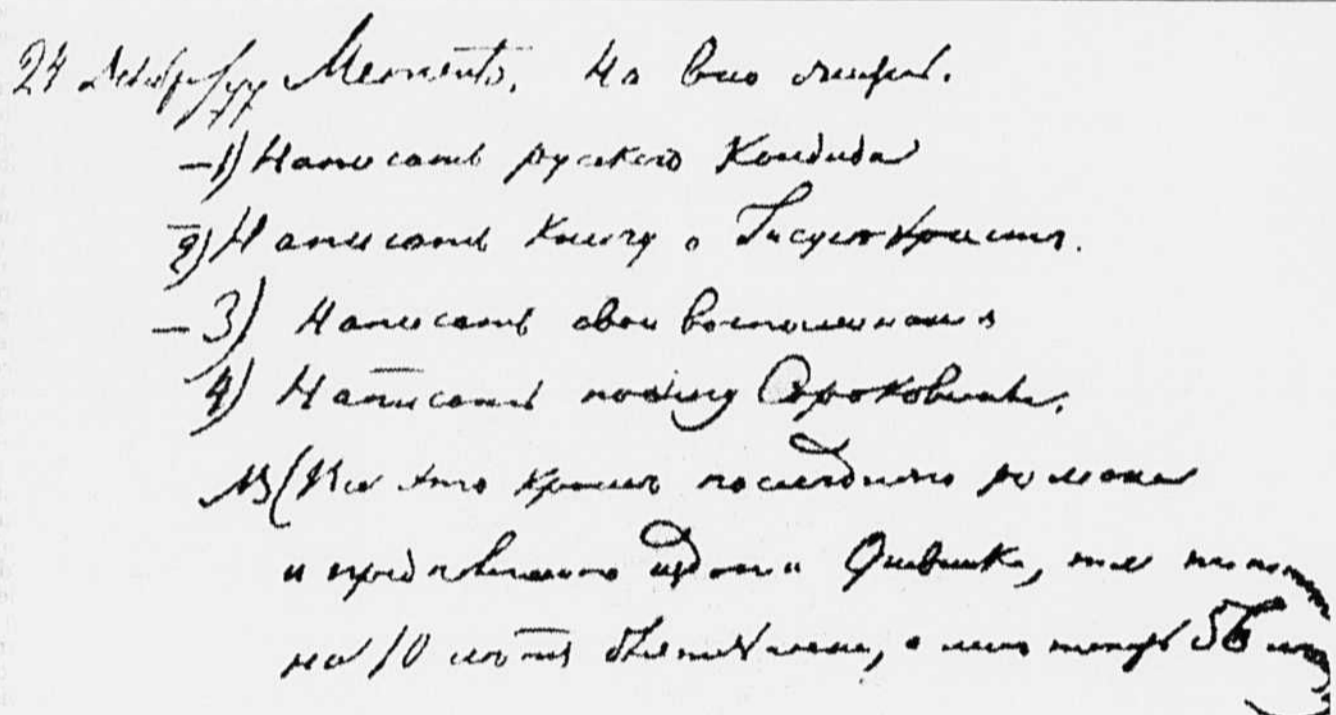 24 декабря/77 Memento. На всю жизнь.
— 1) Написать русского Кандида
2) Написать книгу о Иисусе Христе.
— 3) Написать свои воспоминания
4) Написать поэму Сороковины.
NB (Всё это кроме последнего романа
и предполагаемого издания Дневника, т. е. minimum
на 10 лет деятельности, а мне теперь 56 лет)